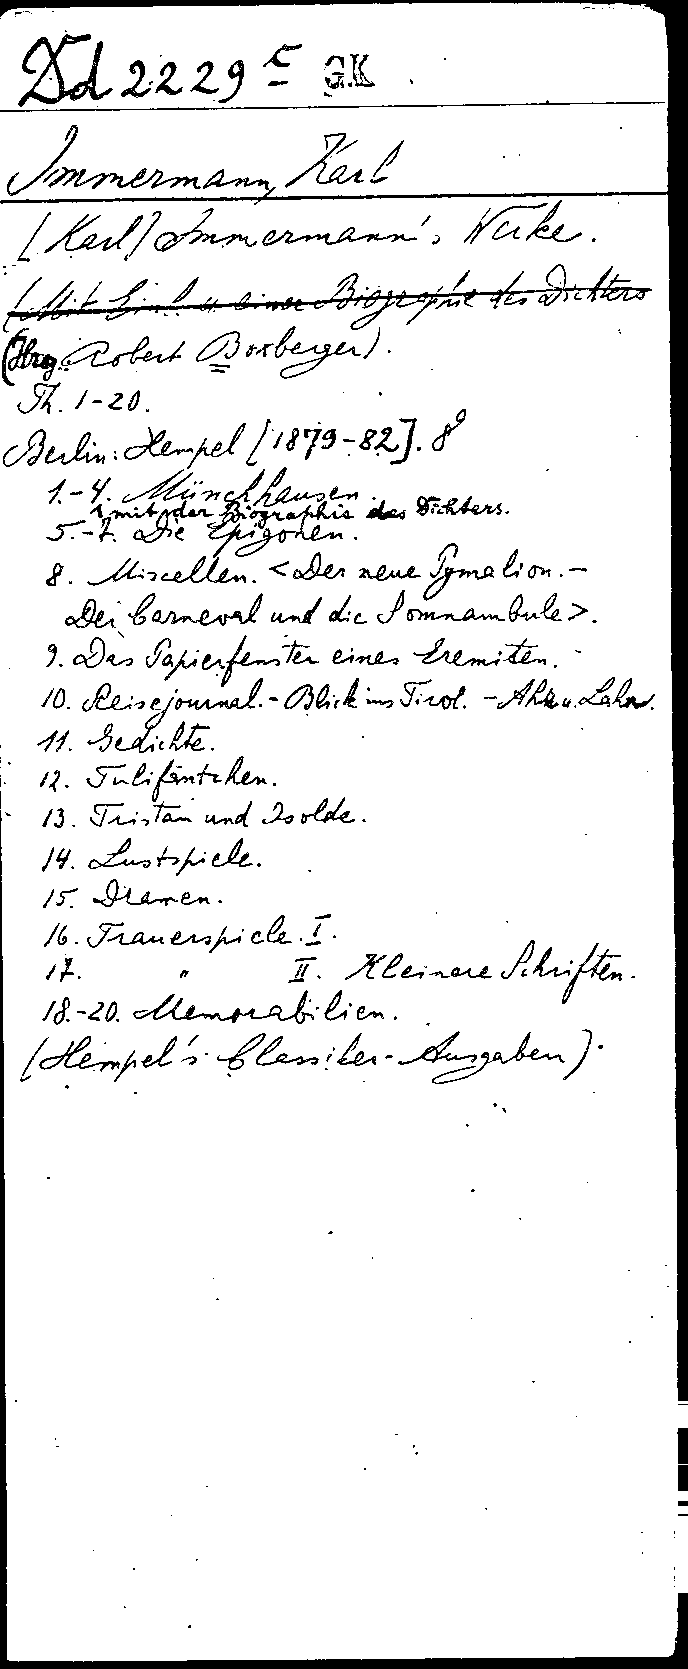 Dd 2229 c G.K
Immermann, Karl
[Karl] Immermann's Werke.
(Mit Einl. u. einer Biographie des Dichters
(Hrg. Robert Boxberger).
Th. 1-20.
Berlin: Hempel [1879-82]. 8°
1.-4. Münchhausen.
1 mit der Biographie des Dichters.
5.-7. Die Epigonen.
8. Miscellen. <Der neue Pymalion. -
Der Carneval und die Somnambule>.
9. Das Papierfenster eines Eremiten.
10. Reisejournal. - Blick ins Tirol. - Ahr u. Lahn.
11. Gedichte.
12. Tulifäntchen.
13. Tristan und Isolde.
14. Lustspiele.
15. Dramen.
16. Trauerspiele. I.
17. " II. Kleinere Schriften.
18.-20. Memorabilien.
(Hempel's Classiker-Ausgaben).